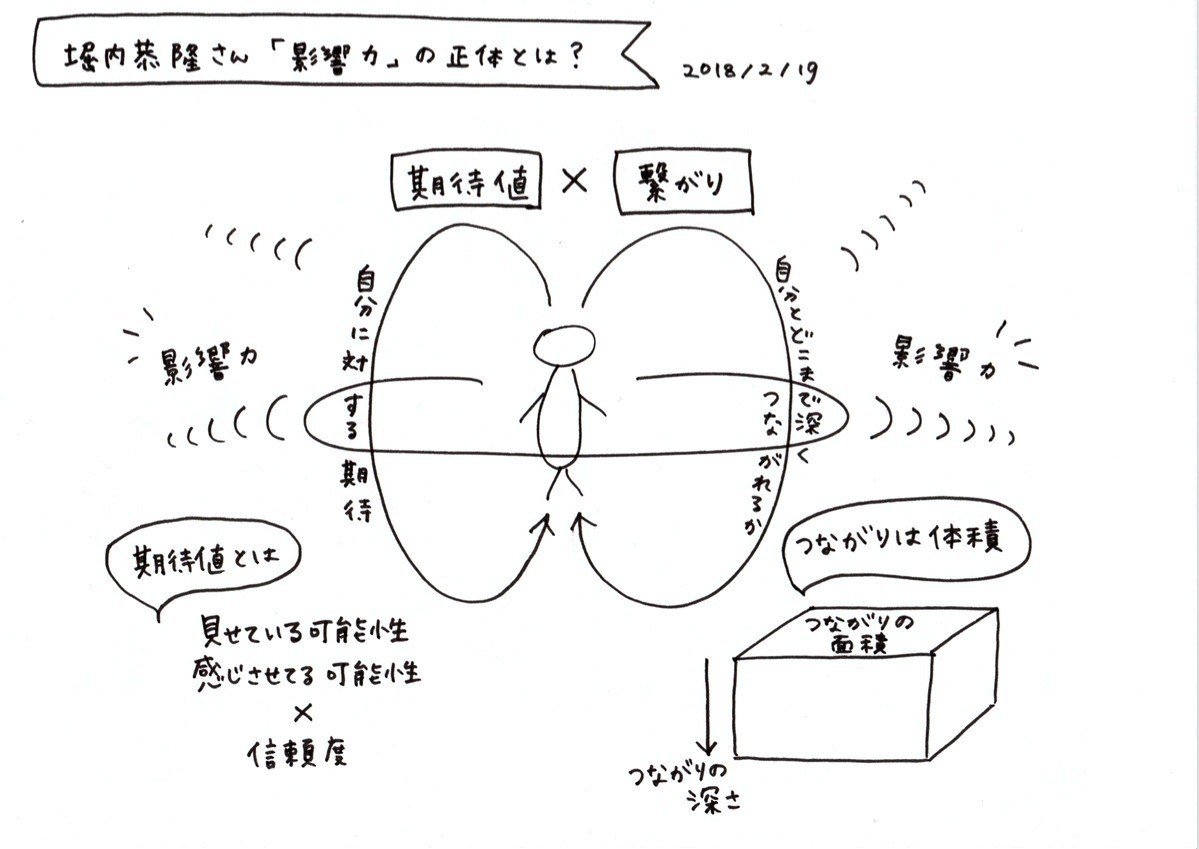 堀内恭隆さん「影響力」の正体とは？
2018/2/19
期待値 × 繋がり
自分に対する期待
自分とどこまで深く
つながれるか
影響力
影響力
期待値とは
見せている可能性
感じさせてる可能性
×
信頼度
つながりは体積
つながりの
面積
つながりの
深さ